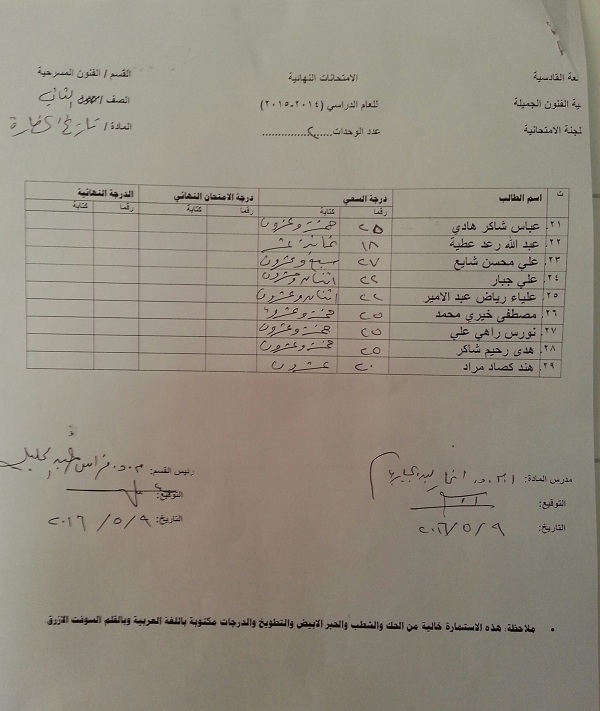 عة القادسية الامتحانات النهائية القسم / الفنون المسرحية
ية الفنون الجميلة للعام الدراسي (٢٠١٤-٢٠١٥) الصف / الثاني
لجنة الامتحانية عدد الوحدات......٢............... المادة / تاريخ الحضارة
ت اسم الطالب درجة السعي درجة الامتحان النهائي الدرجة النهائية
رقما كتابة رقما كتابة رقما كتابة
٢١. عباس شاكر هادي ٢٥ خمسة وعشرون
٢٢. عبد الله رعد عطية ١٨ ثمانية عشر
٢٣. علي محسن شايع ٢٧ سبع وعشرون
٢٤. علي جبار ٢٢ اثنان وعشرون
٢٥. علياء رياض عبد الامير ٢٢ اثنان وعشرون
٢٦. مصطفى خيري محمد ٢٥ خمسة وعشرون
٢٧. نورس راهي علي ٢٥ خمسة وعشرون
٢٨. هدى رحيم شاكر ٢٥ خمسة وعشرون
٢٩. هند كصاد مراد ٢٠ عشرون
مدرس المادة: رئيس القسم: م.د. فراس
التوقيع: التوقيع:
التاريخ: ٢٠١٦/٥/٩ التاريخ: ٢٠١٦/٥/٩
• ملاحظة: هذه الاستمارة خالية من الحك والشطب والحبر الابيض والتطويخ والدرجات مكتوبة باللغة العربية وبالقلم السوفت الازرق.